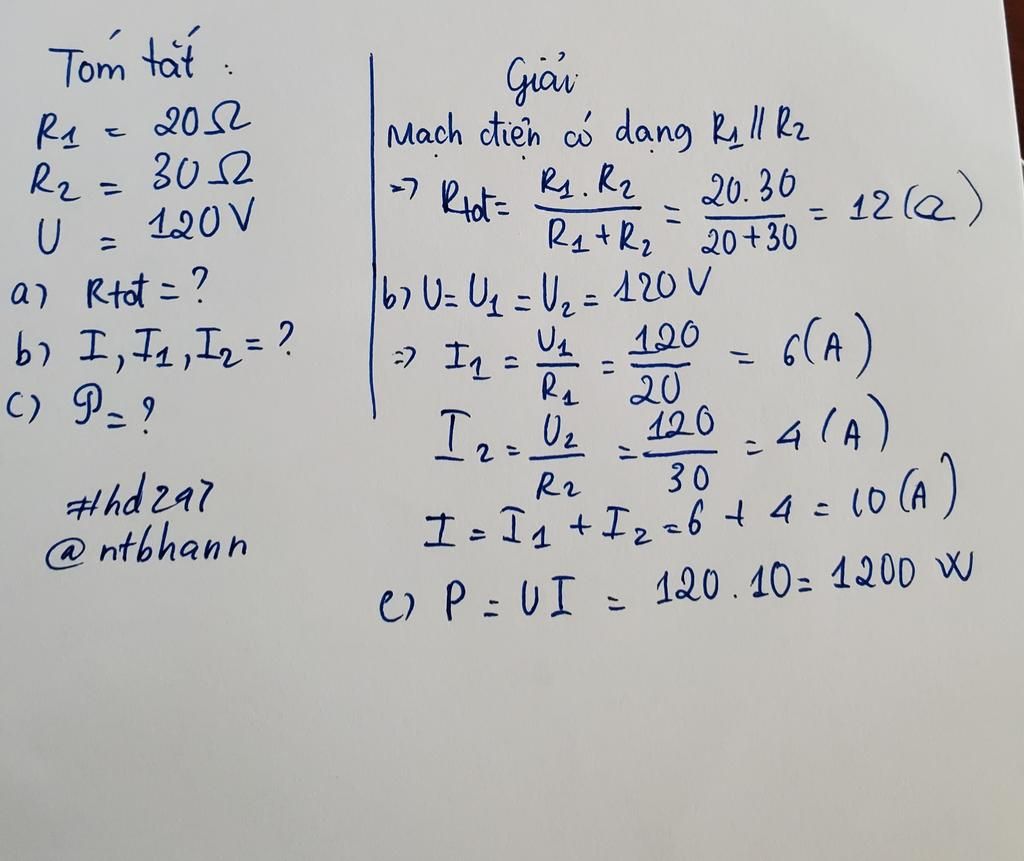 Tóm tắt :
R1 = 20Ω
R2 = 30Ω
U = 120V
a) Rtđt = ?
b) I, I1, I2 = ?
c) P = ?
#hd247
@ntbhann
Giải
Mạch điện có dạng R1 // R2
=> Rtđt = R1 . R2 / R1 + R2 = 20 . 30 / 20 + 30 = 12 (Ω)
b) U = U1 = U2 = 120V
=> I1 = U1 / R1 = 120 / 20 = 6 (A)
I2 = U2 / R2 = 120 / 30 = 4 (A)
I = I1 + I2 = 6 + 4 = 10 (A)
c) P = UI = 120 . 10 = 1200 W